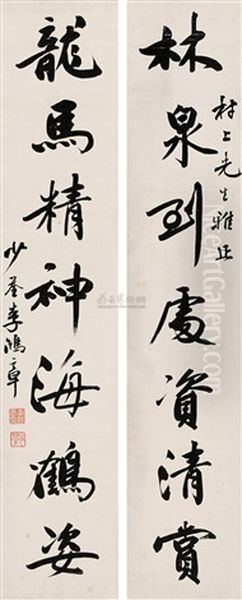 林泉到處資清賞
村上先生雅正
龍馬精神海鶴姿
少荃李鴻章